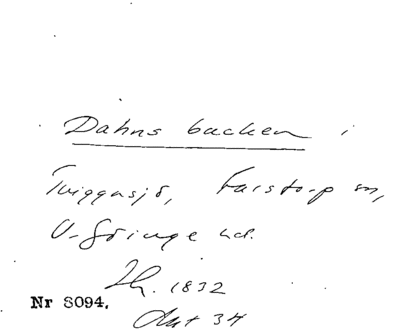 Dahns backen i
Tviggasjö, Farstorp sn,
V. Göinge hd.
Lh. 1832
Akt 34
Nr 8094.